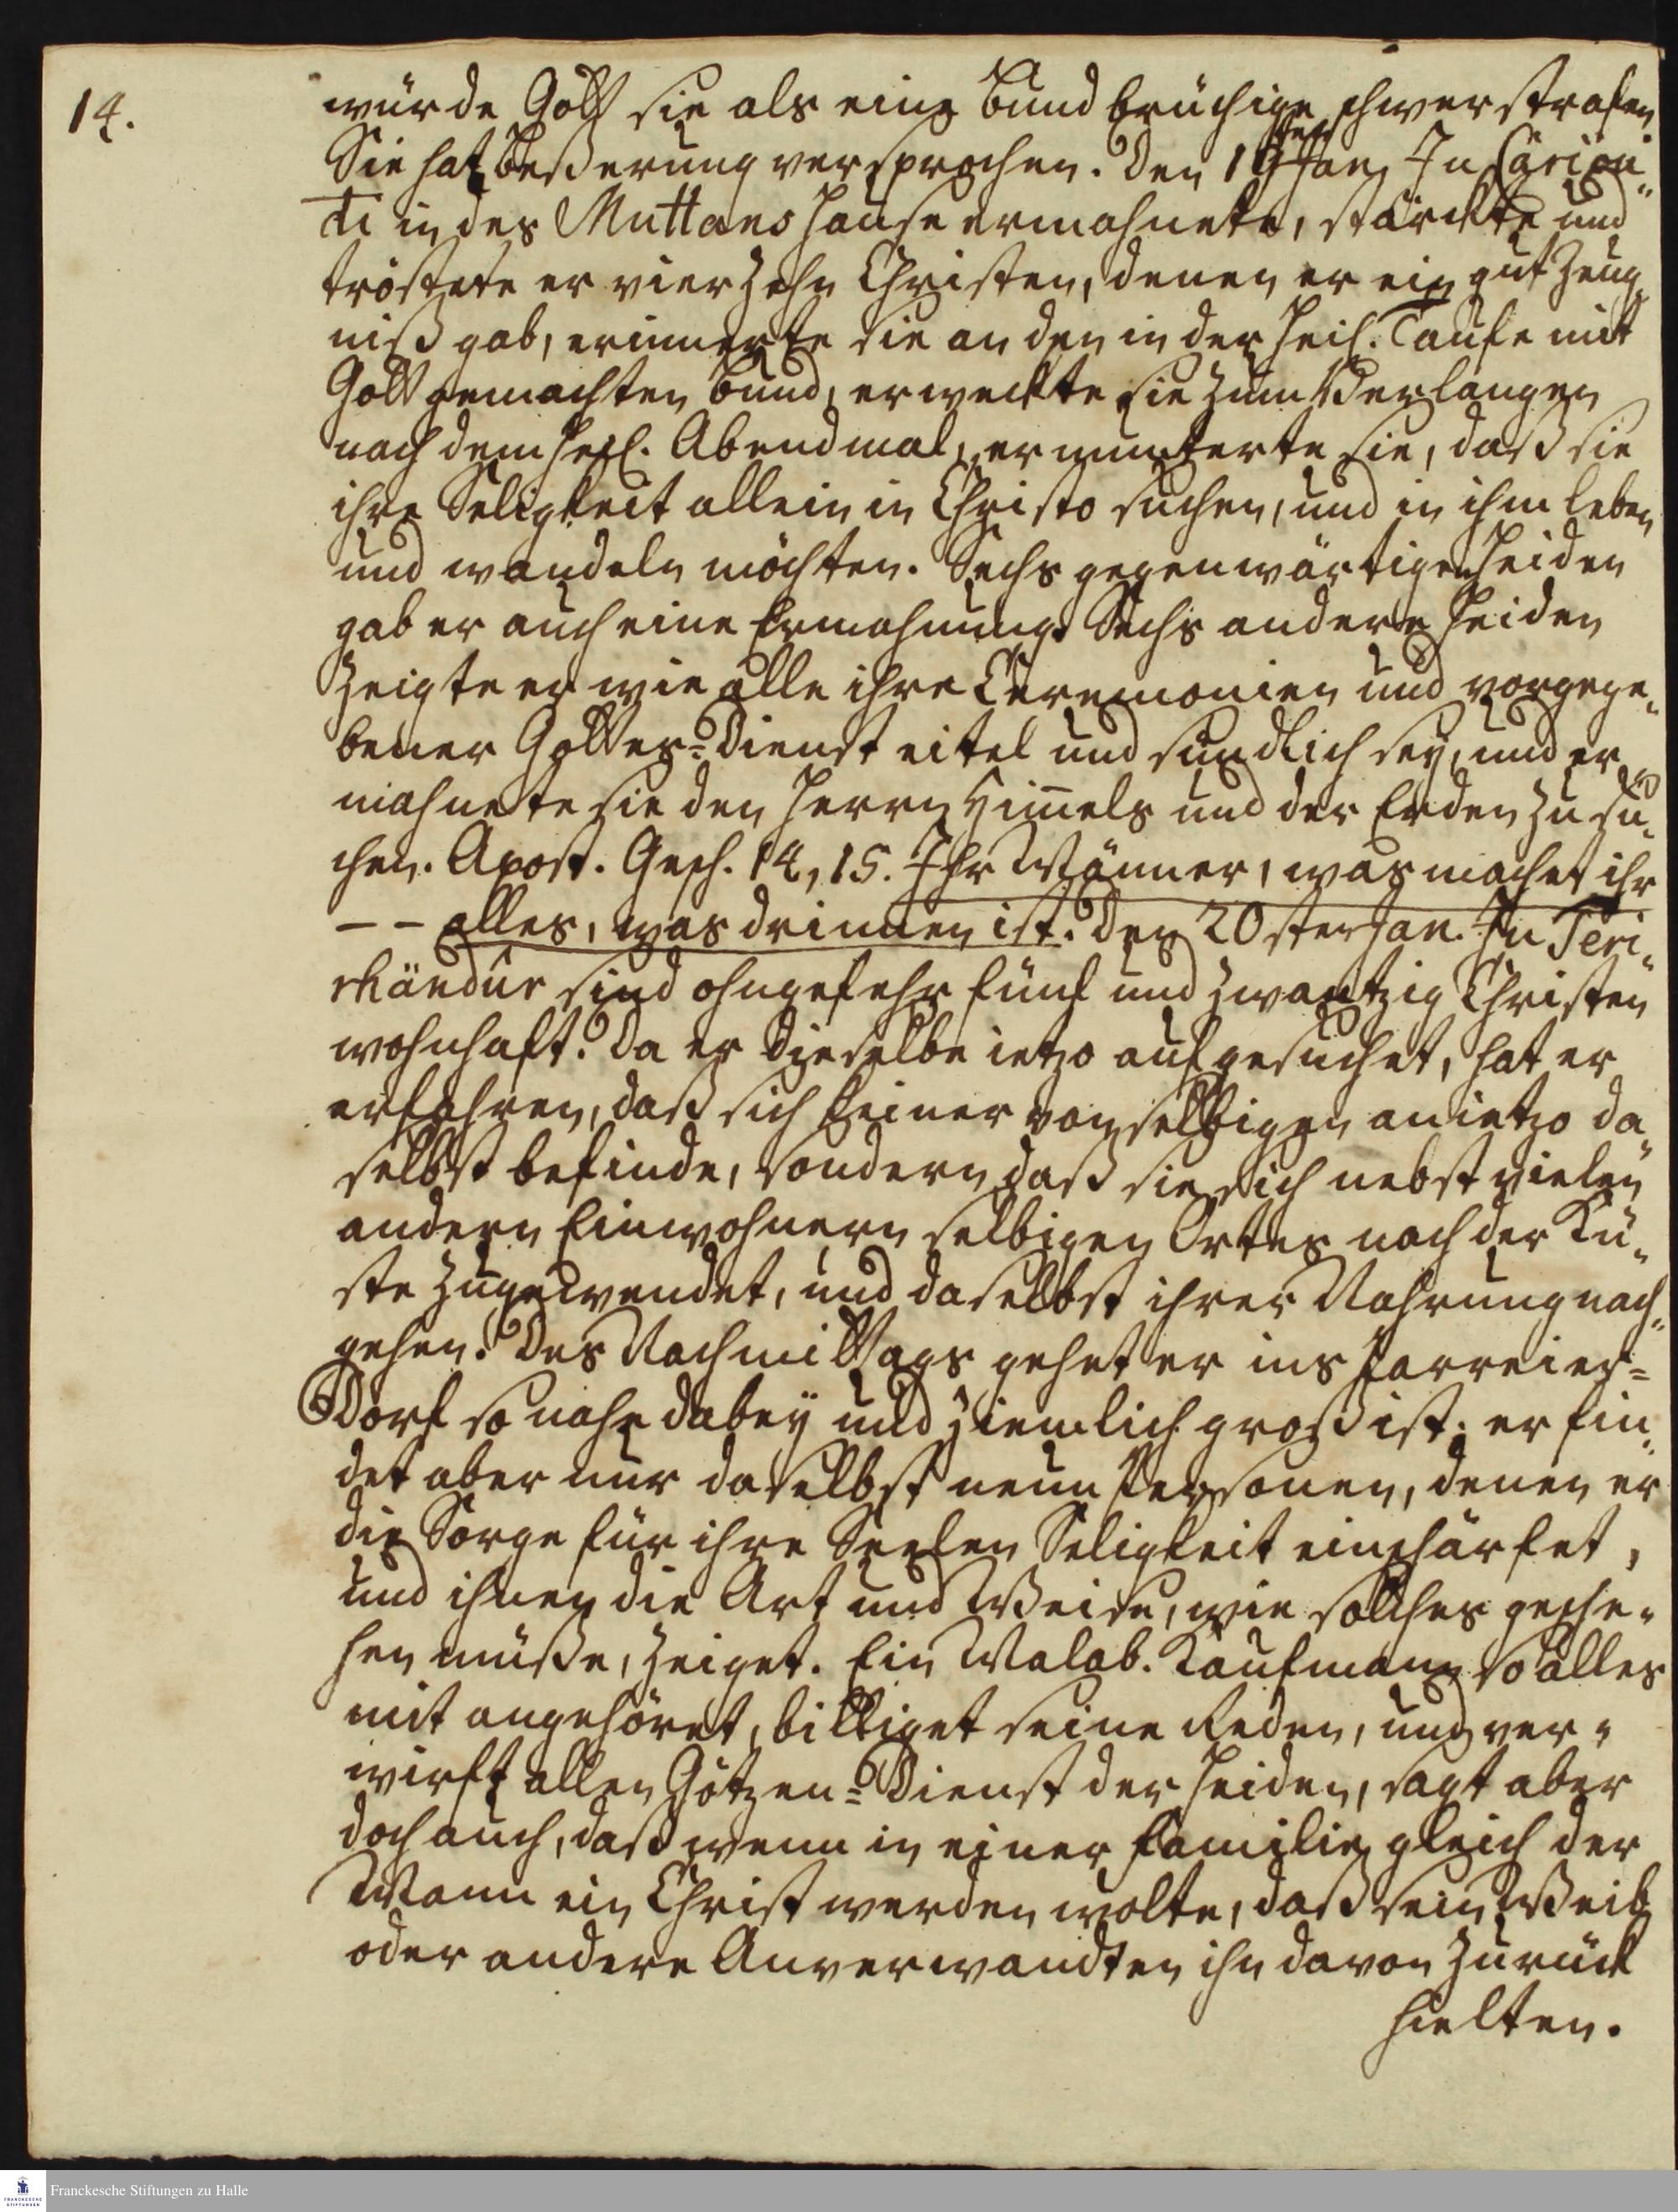 14.
würde Gott sie als eine Bund brüchige schwer strafen
Sie hat Beßerung versprochen. Den 19ten Jan. In Cărion„
ti in des Muttans Hause ermahnete, stärckte und
tröstete er vierzehn Christen, denen er ein gut Zeug„
niß gab, erinnerte sie an den in der Heil. Taufe mit
Gott gemachten Bund, erweckte sie zum Verlangen
nach dem Heil. Abendmal, ermunterte sie, daß sie
ihre Seligkeit allein in Christo suchen, und in ihm leben
und wandeln möchten. Sechs gegenwärtigen Heiden
gab er auch eine Ermahnung. Sechs andere Heiden
zeigte er wie alle ihre Ceremonien und vorgege„
bener Gottes=Dienst eitel und sündlich sey, und er„
mahnete sie den Herrn Him̄els und der Erden zu su„
chen. Apost. Gesch. 14, 15. Ihr Männer, was machet ihr
– – alles, was drinnen ist. Den 20sten Jan. In Teri„
rhändur sind ohngefehr fünf und zwantzig Christen
wohnhaft. Da er dieselbe ietzo aufgesuchet, hat er
erfahren, daß sich keiner von selbigen anietzo da„
selbst befinde, sondern daß sie sich nebst vielen
andern Einwohnern selbigen Ortes nach der Kü„
ste zugewendet, und daselbst ihrer Nahrung nach„
gehen. Des Nachmittags gehet er ins Parreier=
Dorf so nahe dabey und ziemlich groß ist: er fin„
det aber nur daselbst neun Personen, denen er
die Sorge für ihre Seelen Seligkeit einschärfet,
und ihnen die Art und Weise, wie solches gesche„
hen müße, zeiget. Ein Malab. Kaufmann so alles
mit angehöret, billiget seine Reden, und ver„
wirft allen Götzen=Dienst der Heiden, sagt aber
doch auch, daß wenn in einer Familie gleich der
Mann ein Christ werden wolte, daß sein Weib
oder andere Anverwandten ihn davon zurück
hielten.
Franckesche Stiftungen zu Halle
FRANCKESCHE
STIFTUNGEN